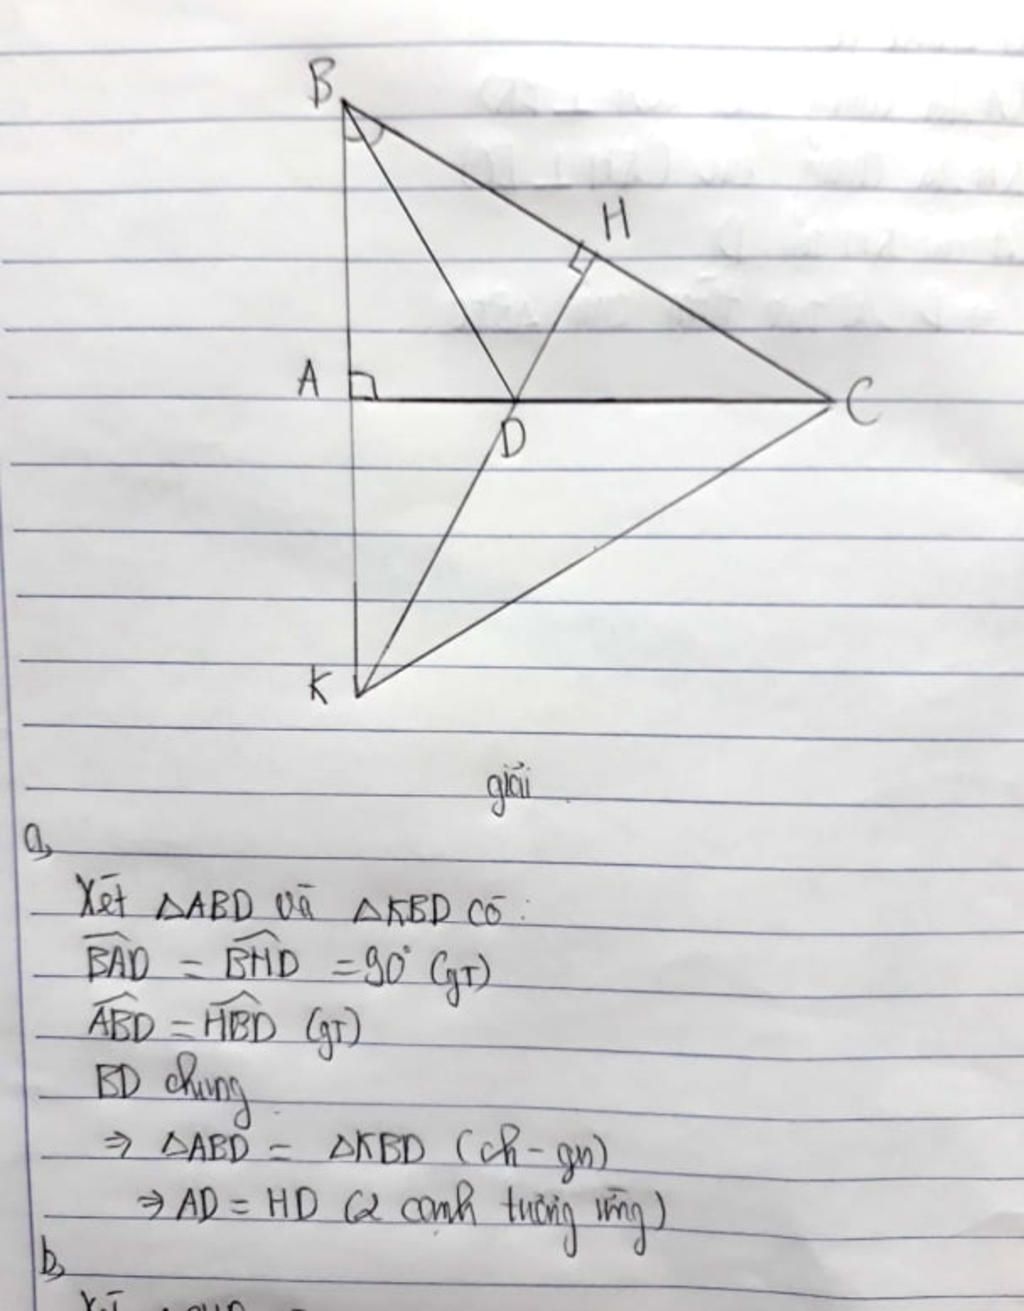 B
H
A
C
D
K
giải
a,
Xét △ABD và △KBD có:
\widehat{BAD} = \widehat{BHD} = 90° (gT)
\widehat{ABD} = \widehat{HBD} (gT)
BD chung
⇒ △ABD = △KBD (ch-gn)
⇒ AD = HD (2 cạnh tương ứng)
b,